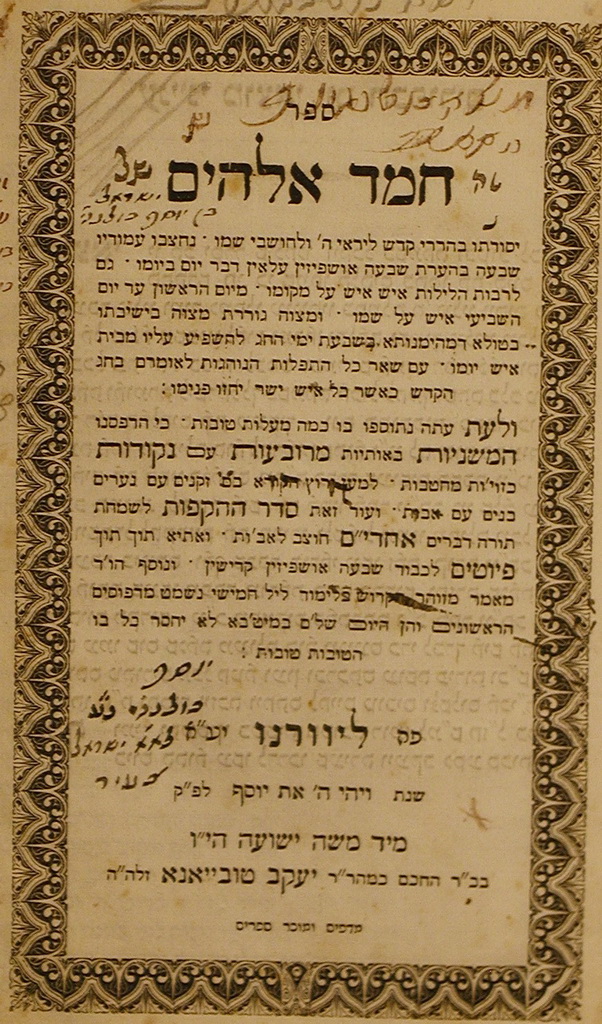 ספר
חמד אלהים
יסודתו בהררי קדש ליראי ה' ולחושבי שמו · נחצבו עמודיו
שבעה בהערת שבעה אושפיזין עלאין דבר יום ביומו · גם
לרבות הלילות איש איש על מקומו · מיום הראשון עד יום
השביעי איש על שמו · ומצוה גוררת מצוה בישיבתו
בטולא דמהימנותא בשבעת ימי החג להשפיע עליו מבית
איש יומו · עם שאר כל התפלות הנוהגות לאומרם בחג
הקדש כאשר כל איש ישר יחזו פנימו :
ולעת עתה נתוספו בו כמה מעלות טובות · כי הדפסנו
המשניות באותיות מרובעות עם נקודות
כזוי'ות מחטבות · למען ירוץ הקורא בם זקנים עם נערים
בנים עם אבות · ועוד זאת סדר ההקפות לשמחת
תורה דברים אחדי"ם חוצב לאב'ות · ואתיא תוך תוך
פיוטים לכבוד שבעה אושפיזין קדישין · ונוסף הו'ד
מאמר מזוהר הקדוש ללימוד ליל חמישי נשמט מדפוסים
הראשונים והן היום של'ם במיט'בא לא יחסר כל בו
הטובות טובות :
יוסף
פה ליוורנו יע"א
ישראל
שנת ויהי ה' את יוסף לפ"ק
מיד משה ישועה הי"ו
בכ"ר החכם כמהר"ר יעקב טובייאנא זלה"ה
מדפיס ומוכר ספרים